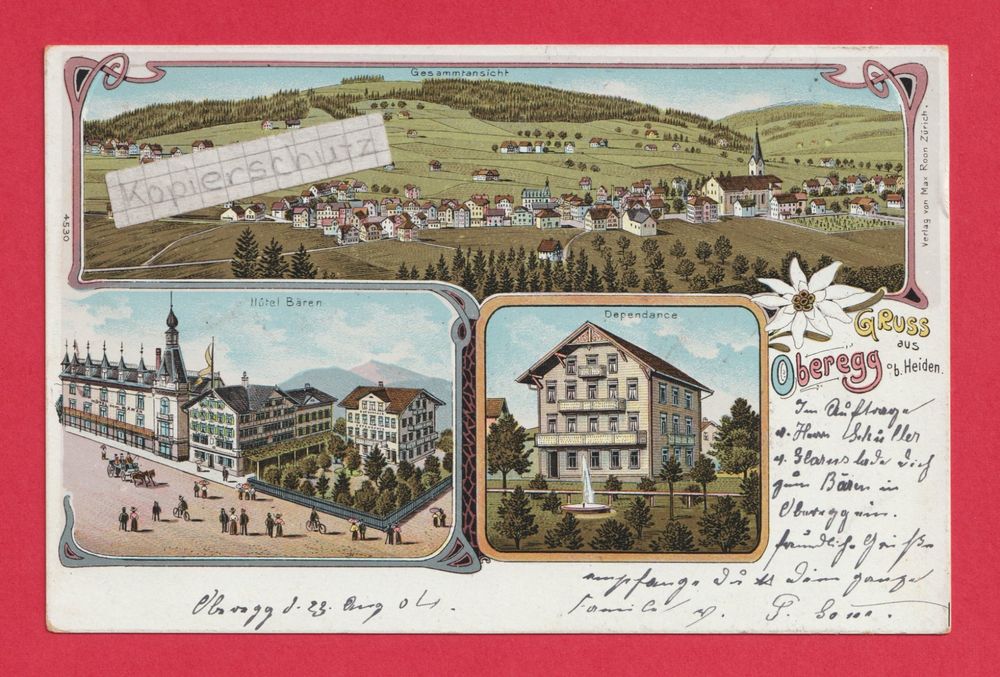 Gesammtansicht
Kopierschutz
4530
Verlag von Max Roon Zürich.
Hôtel Bären
Dependance
Gruss
aus
Oberegg
ob. Heiden.
Im Auftrage
v. Herrn Schuller
v. Glarus lade Dich
zum Bären in
Oberegg ein.
freundliche Grüße
empfange Du & Dein ganze
Familie v.
Oberegg d. 23. Aug 04.